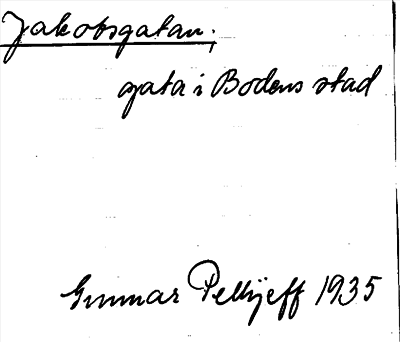 Jakobsgatan,
gata i Bodens stad
Gunnar Pellijeff 1935